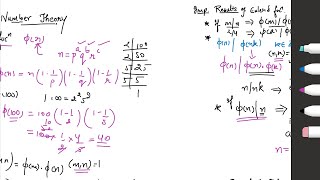 Number Theory
φ(n)
n = p^a q^b r^c
φ(n) = n(1-1/p)(1-1/q)(1-1/r)
2 | 100
2 | 50
5 | 25
5 | 5
1
100)
100 = 2² 5²
φ(100) = 100(1-1/2)(1-1/5)
= 100 × 1/2 × 4/5 = 40
φ(m)·φ(n) (m,n)=1
Imp. Results of
* If m/n ⇒ φ(m) | φ(
2/4
φ(n) | φ(nk)
φ(n) | φ(n)·φ(k)
n/nk ⇒
* If φ(n) | n ⇒
n =